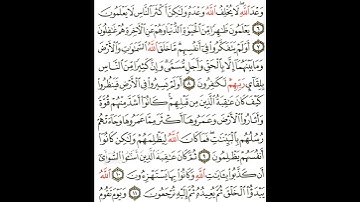 وَعْدَ ٱللَّهِ لَا يُخْلِفُ ٱللَّهُ وَعْدَهُۥ وَلَٰكِنَّ أَكْثَرَ ٱلنَّاسِ لَا يَعْلَمُونَ
٦ يَعْلَمُونَ ظَٰهِرًا مِّنَ ٱلْحَيَوٰةِ ٱلدُّنْيَا وَهُمْ عَنِ ٱلْءَاخِرَةِ هُمْ غَٰفِلُونَ
٧ أَوَلَمْ يَتَفَكَّرُوا۟ فِىٓ أَنفُسِهِم مَّا خَلَقَ ٱللَّهُ ٱلسَّمَٰوَٰتِ وَٱلْأَرْضَ
وَمَا بَيْنَهُمَآ إِلَّا بِٱلْحَقِّ وَأَجَلٍ مُّسَمًّى وَإِنَّ كَثِيرًا مِّنَ ٱلنَّاسِ
بِلِقَآئِ رَبِّهِمْ لَكَٰفِرُونَ ٨ أَوَلَمْ يَسِيرُوا۟ فِى ٱلْأَرْضِ فَيَنظُرُوا۟
كَيْفَ كَانَ عَٰقِبَةُ ٱلَّذِينَ مِن قَبْلِهِمْ كَانُوٓا۟ أَشَدَّ مِنْهُمْ قُوَّةً
وَأَثَارُوا۟ ٱلْأَرْضَ وَعَمَرُوهَآ أَكْثَرَ مِمَّا عَمَرُوهَا وَجَآءَتْهُمْ
رُسُلُهُم بِٱلْبَيِّنَٰتِ فَمَا كَانَ ٱللَّهُ لِيَظْلِمَهُمْ وَلَٰكِن كَانُوٓا۟
أَنفُسَهُمْ يَظْلِمُونَ ٩ ثُمَّ كَانَ عَٰقِبَةَ ٱلَّذِينَ أَسَٰٓـُٔوا۟ ٱلسُّوٓأَىٰٓ
أَن كَذَّبُوا۟ بِـَٔايَٰتِ ٱللَّهِ وَكَانُوا۟ بِهَا يَسْتَهْزِءُونَ ١٠ ٱللَّهُ
يَبْدَؤُا۟ ٱلْخَلْقَ ثُمَّ يُعِيدُهُۥ ثُمَّ إِلَيْهِ تُرْجَعُونَ ١١ وَيَوْمَ تَقُومُ